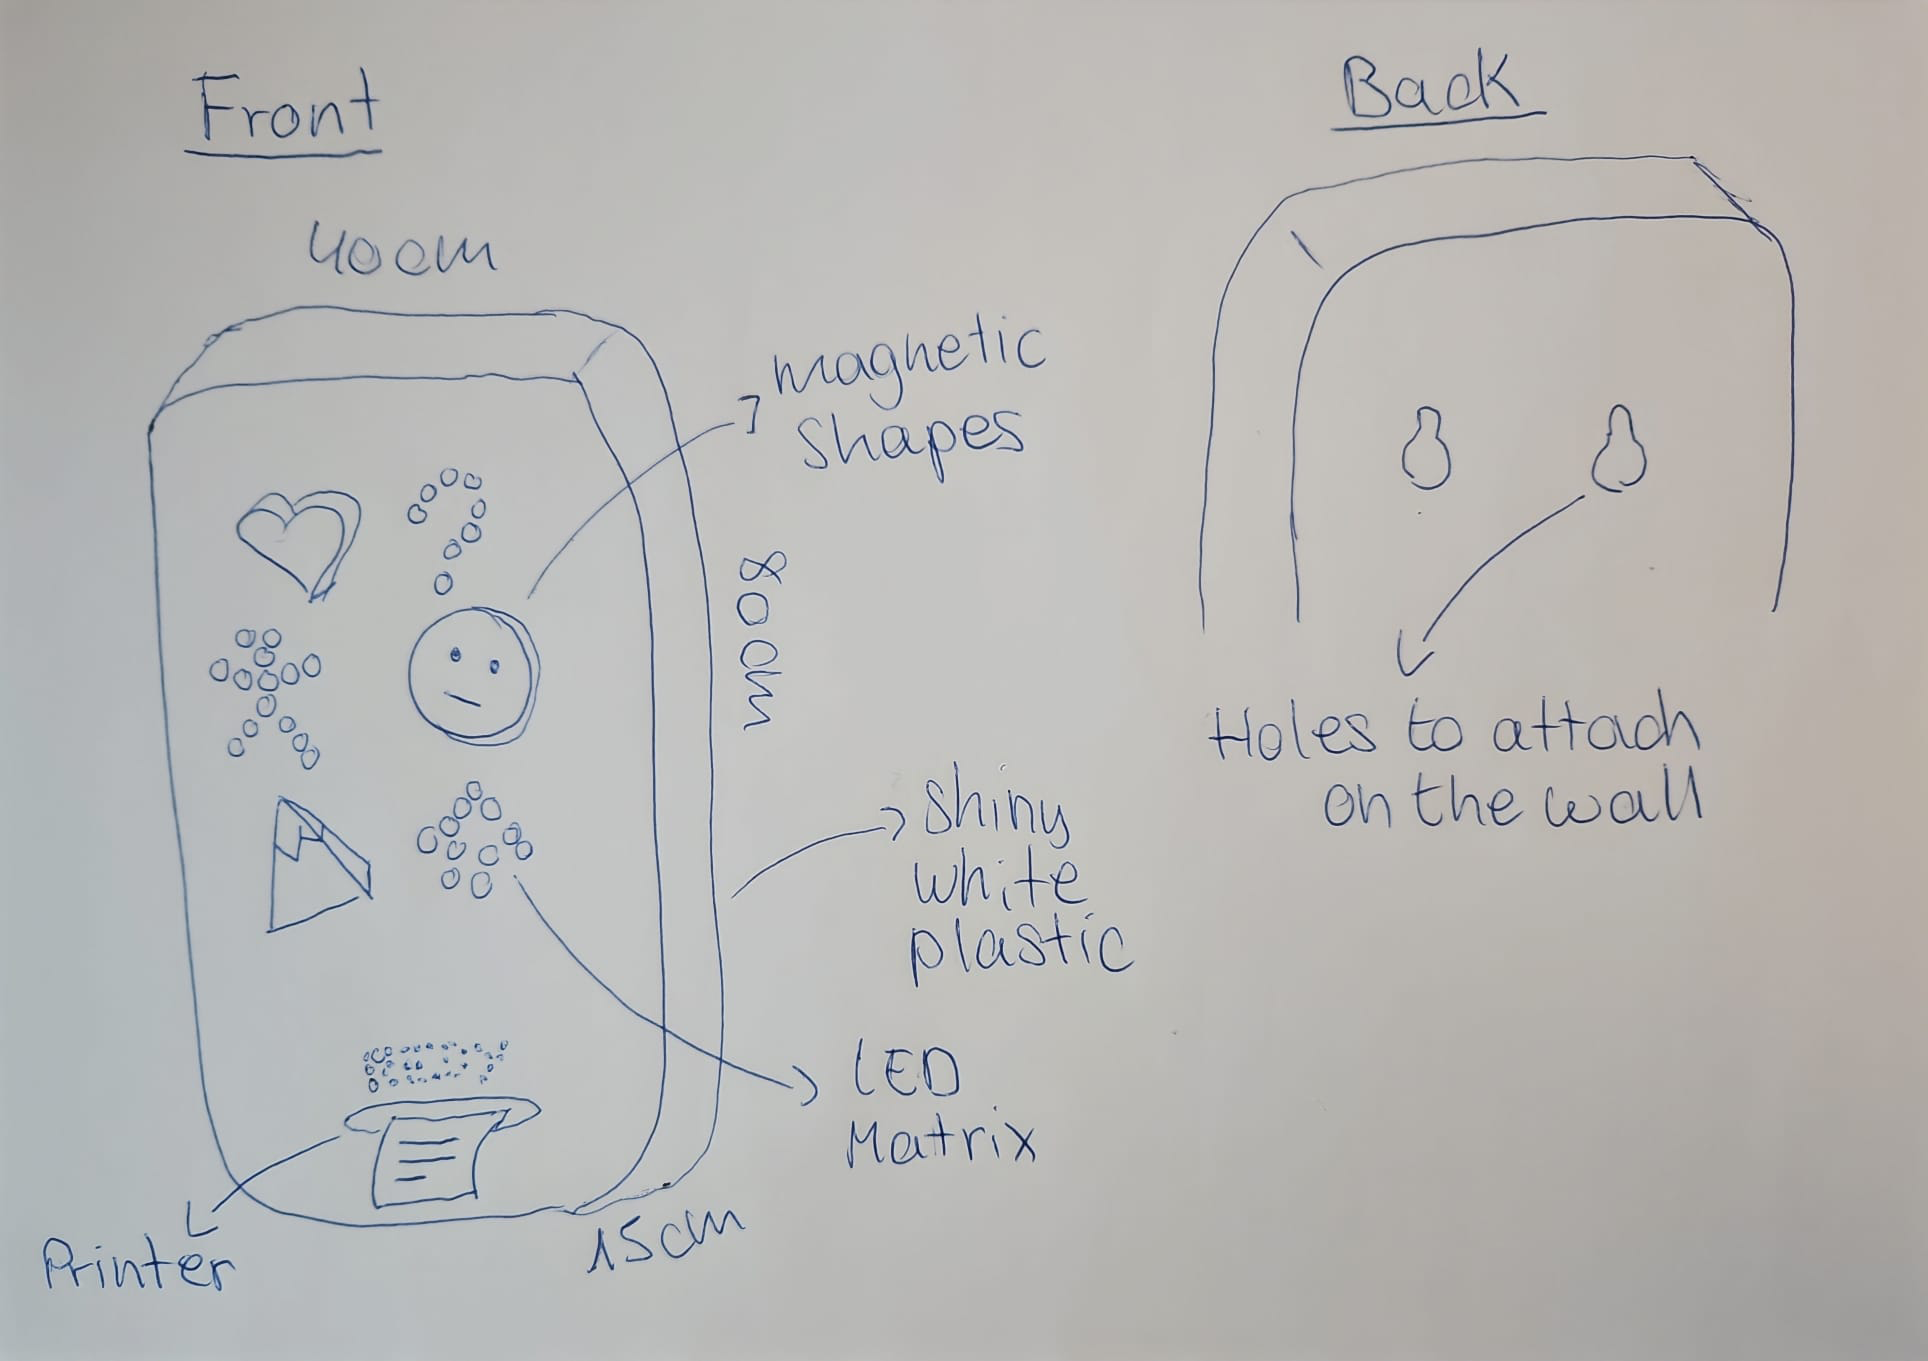 Front
40cm
magnetic
shapes
80cm
shiny
white
plastic
LED
Matrix
Printer
15cm
Back
Holes to attach
on the wall